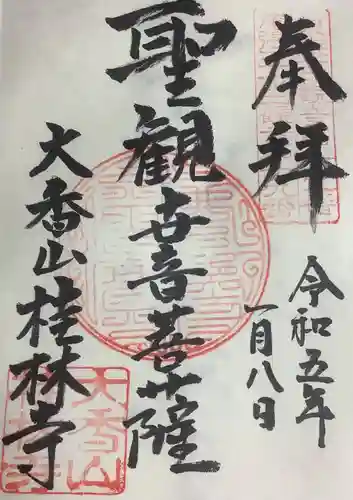 奉拝
令和五年
一月八日
聖観世音菩薩
大香山桂林寺
大香山
桂林寺